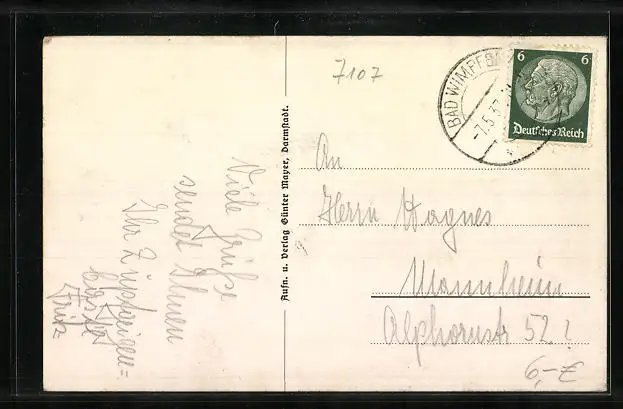 7107
BAD WIMPFEN
-7.5.37
6 6
Deutsches Reich
An
Herrn Hagnes
Mannheim
Alphornstr 52
6,- €
Aufn. u. Verlag Günter Mayer, Darmstadt.
Viele Grüße
sendet Ihnen
Ihr
Fritz